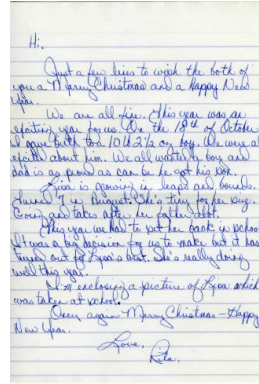 Hi,
Just a few lines to wish the both of
you a Merry Christmas and a Happy New
Year.
We are all fine. This year was an
exciting year for us. On the 18th of October
I gave birth to a 10 lb 2½ oz boy. We were all
excited about him. We all wanted a boy and
Dad is as proud as can be he got his son.
Lisa is growing in leaps and bounds.
Turned 7 in August. She's tiny for her age.
and takes after her father alot.
This year we had to put her back in school
It was a big decision for us to make but it has
turned out for Lisa's best. She's really doing
well this year.
I'm enclosing a picture of Lisa which
was taken at school.
Once again Merry Christmas - Happy
New Year.
Love,
Rita.